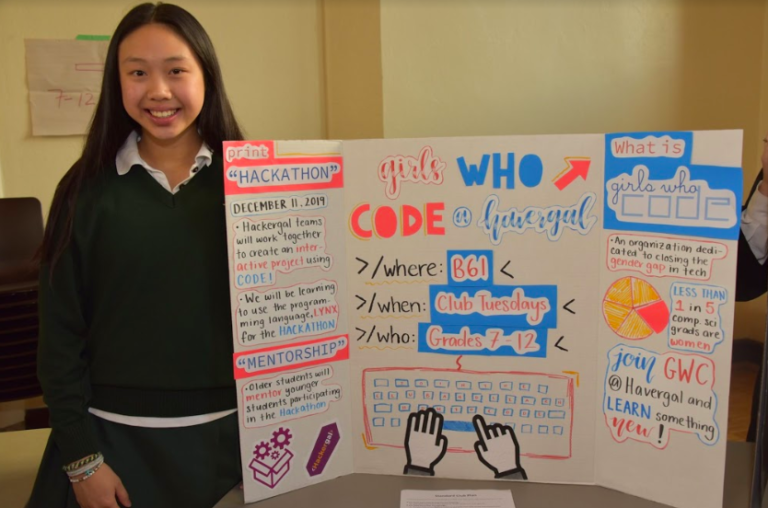 7-12
print
"HACKATHON"
DECEMBER 11, 2019
• Hackergal teams
will work together
to create an inter-
active project using
CODE!
• We will be learning
to use the program-
ming language, LYNX
for the HACKATHON
"MENTORSHIP"
• Older students will
mentor younger
students participating
in the Hackathon
hackergal
girls WHO
CODE @ havergal
>/where: B61 <
>/when: Club Tuesdays <
>/who: Grades 7-12 <
What is
girls who
code
• An organization dedi-
cated to closing the
gender gap in tech
LESS THAN
1 in 5
comp. sci
grads are
women
join GWC
@ Havergal and
LEARN something
new!